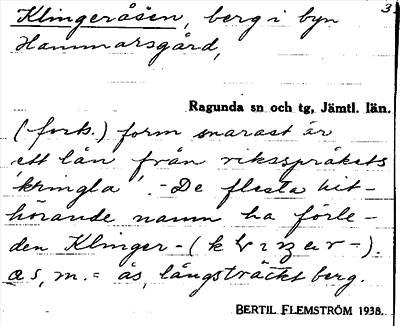 Klingeråsen, berg i byn 3.
Hammarsgård,
Ragunda sn och tg, Jämtl. län.
(forts.) form snarast är
ett lån från riksspråkets
'kringla'. - De flesta hit-
hörande namn ha förle-
den Klinger- ( ).
as, m. = ås, långsträckt berg.
BERTIL FLEMSTRÖM 1938.